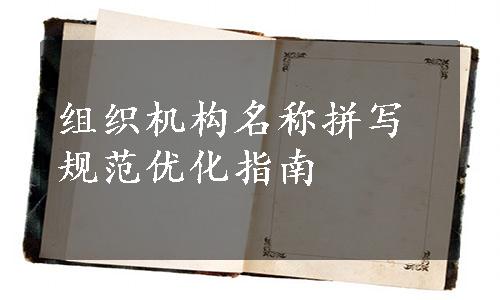 组织机构名称拼写
规范优化指南